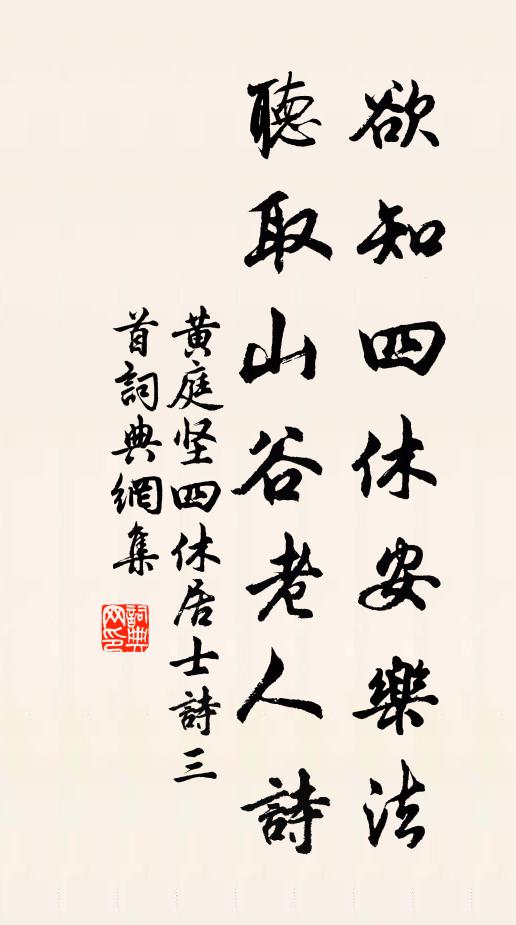 欲知四休安樂法
聽取山谷老人詩
黄庭坚四休居士詩三
首詞典網集
詞典
网印